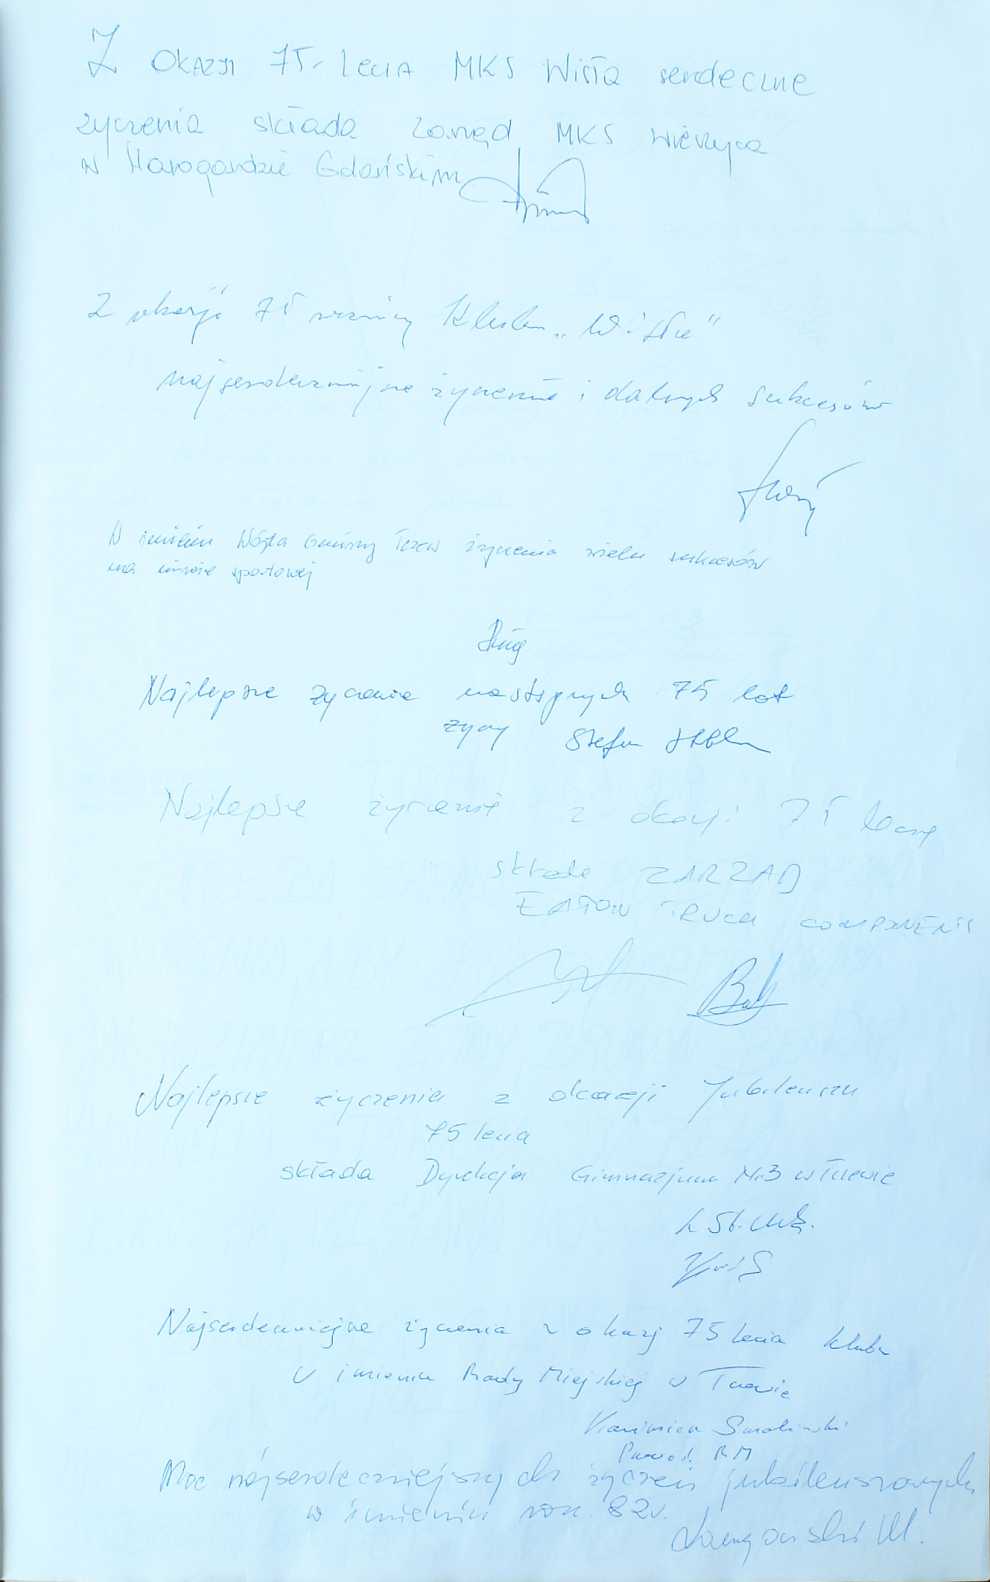 Z OKAZJI 75-lecia MKS Wisła serdeczne
życzenia składa Zarząd MKS Wierzyca
w Starogardzie Gdańskim
Z okazji 75 rocznicy Klubu „Wisła"
najserdeczniejsze życzenia i dalszych sukcesów
W imieniu Wójta Gminy Tczew życzenia wielu sukcesów
na niwie sportowej
Najlepsze życzenia następnych 75 lat
życzy Stefan
Najlepsze życzenia z okazji 75 lecia
składa ZARZĄD
EATON TRUCK COMPONENTS
Najlepsze życzenia z okazji Jubileuszu
75 lecia
składa Dyrekcja Gimnazjum Nr 3 w Tczewie
Najserdeczniejsze życzenia z okazji 75 lecia klubu
w imieniu Rady Miejskiej w Tczewie
Kazimierz Smoliński
Przewod. RM
Moc najserdeczniejszych życzeń jubileuszowych
w imieniu